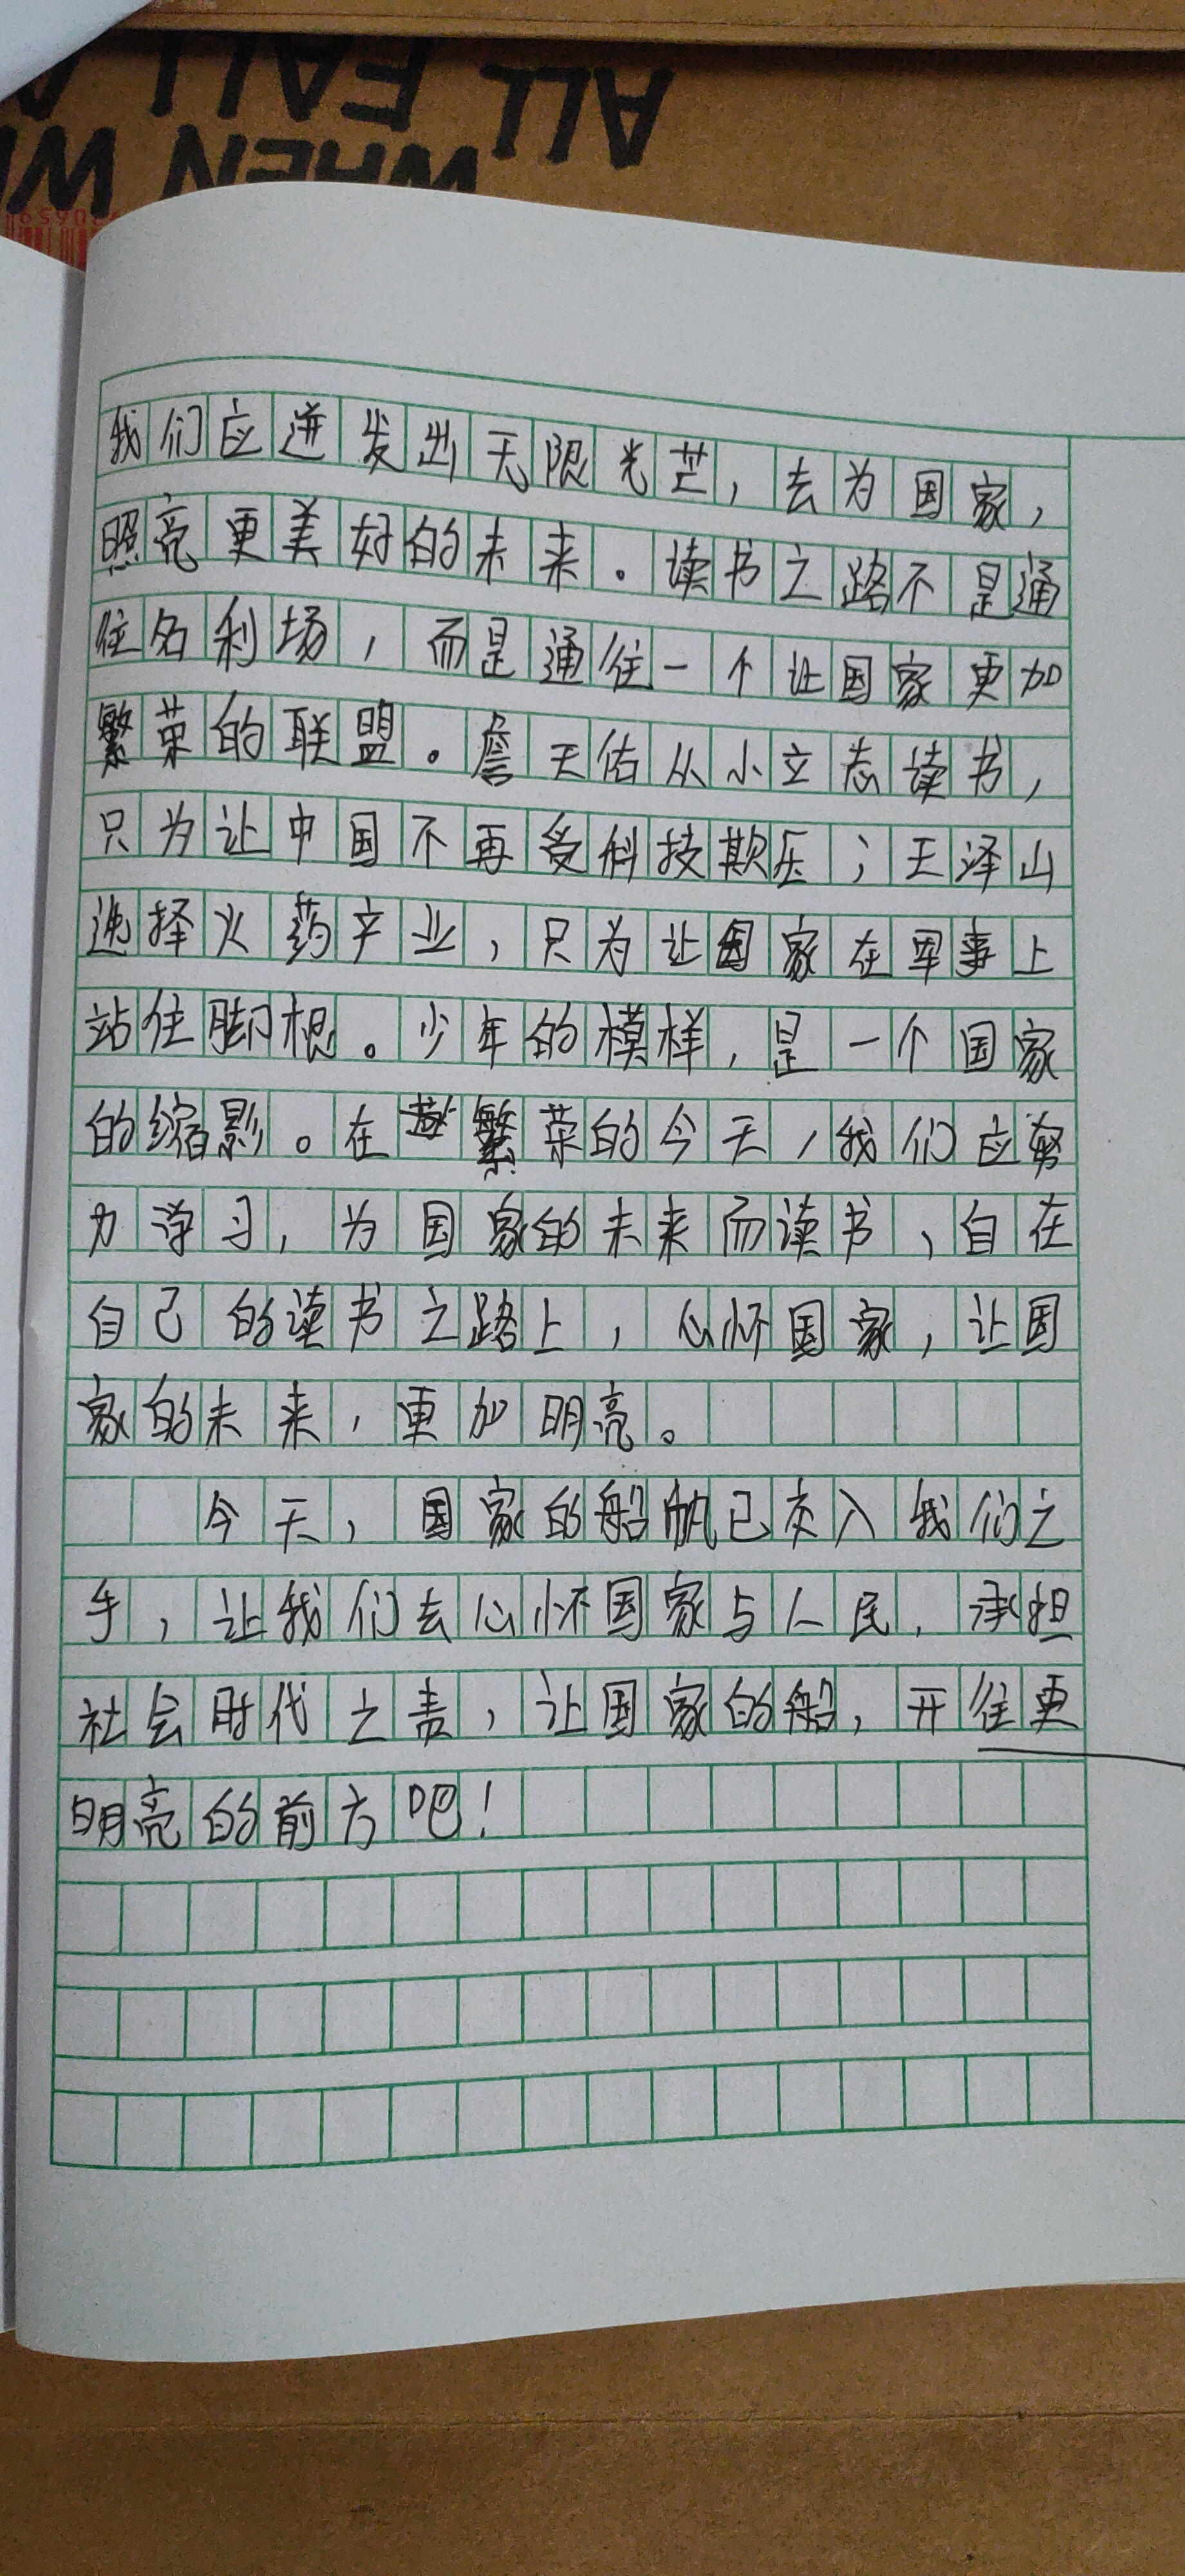 ALL FALL A
WHEN WE
我们应迸发出无限光芒，去为国家，
照亮更美好的未来。读书之路不是通
往名利场，而是通往一个让国家更加
繁荣的联盟。詹天佑从小立志读书，
只为让中国不再受科技欺压；王泽山
选择火药产业，只为让国家在军事上
站住脚根。少年的模样，是一个国家
的缩影。在繁荣的今天，我们应努
力学习，为国家的未来而读书，自在
自己的读书之路上，心怀国家，让国
家的未来，更加明亮。
今天，国家的船帆已交入我们之
手，让我们去心怀国家与人民，承担
社会时代之责，让国家的船，开往更
明亮的前方吧！